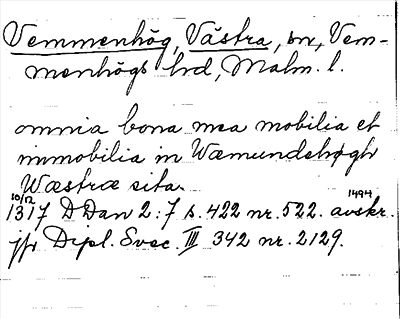 Vemmenhög, Västra, sn, Vem-
menhögs hd, Malm. l.
omnia bona mea mobilia et
immobilia in Wæmundehøgh
Wæstræ sita
10/12 1494
1317 D Dan 2:7 s. 422 nr. 522. avskr.
jfr Dipl. Svec. III 342 nr. 2129.